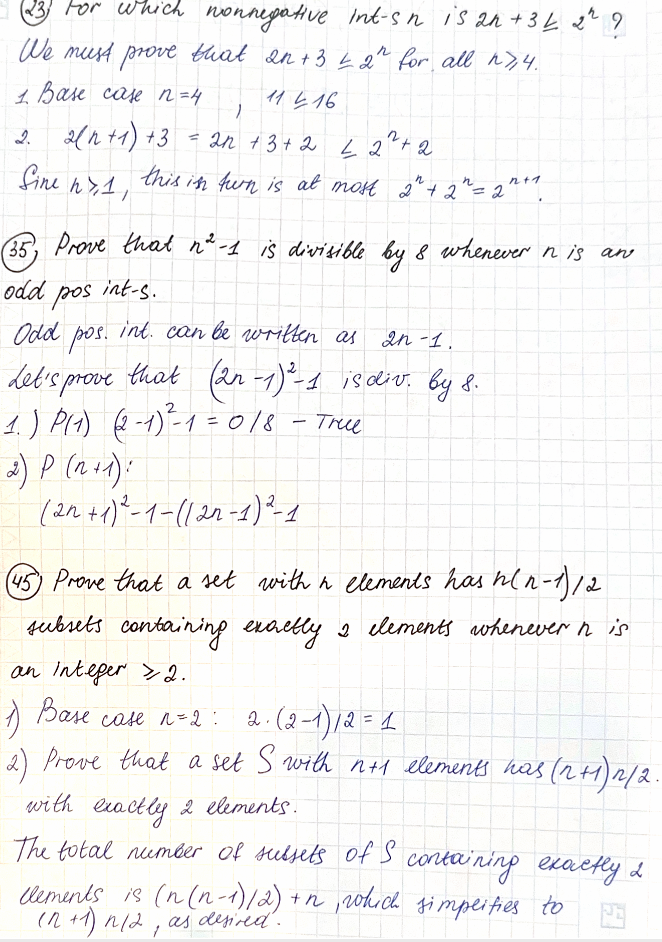 23) For which nonnegative int-s n is 2n + 3 ≤ 2ⁿ ?
We must prove that 2n + 3 ≤ 2ⁿ for all n ≥ 4.
1. Base case n = 4 , 11 ≤ 16
2. 2(n+1) + 3 = 2n + 3 + 2 ≤ 2ⁿ + 2
Sine n ≥ 1, this in turn is at most 2ⁿ + 2ⁿ = 2ⁿ⁺¹.
35) Prove that n² - 1 is divisible by 8 whenever n is an
odd pos int-s.
Odd pos. int. can be written as 2n - 1.
Let's prove that (2n - 1)² - 1 is div. by 8.
1.) P(1) (2 - 1)² - 1 = 0 / 8 – True
2) P (n+1):
(2n + 1)² - 1 - ((2n - 1)² - 1
45) Prove that a set with n elements has n(n-1)/2
subsets containing exactly 2 elements whenever n is
an integer ≥ 2.
1) Base case n = 2 : 2·(2-1)/2 = 1
2) Prove that a set S with n+1 elements has (n+1)n/2.
with exactly 2 elements.
The total number of subsets of S containing exactly 2
elements is (n(n-1)/2) + n , which simplifies to
(n+1) n/2 , as desired.